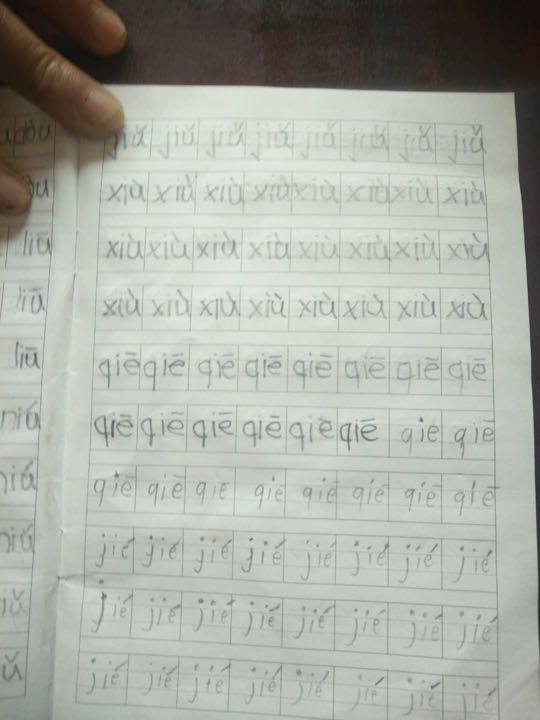 dòu
òu
liū
liū
liū
niú
niú
niú
iǔ
ǔ
jiǔ jiǔ jiǔ jiǔ jiǔ jiǔ jiǔ jiǔ
xiù xiù xiù xiù xiù xiù xiù xiù
xiù xiù xiù xiù xiù xiù xiù xiù
xiù xiù xiù xiù xiù xiù xiù xiù
qiē qiē qiē qiē qiē qiē qiē qiē
qiē qiē qiē qiē qiē qiē qie qiē
qiē qiē qie qiē qiē qiē qiē qiē
jié jié jié jié jié jié jié jié
jié jié jié jié jié jié jié jié
jié jié jié jié jié jié jié jié